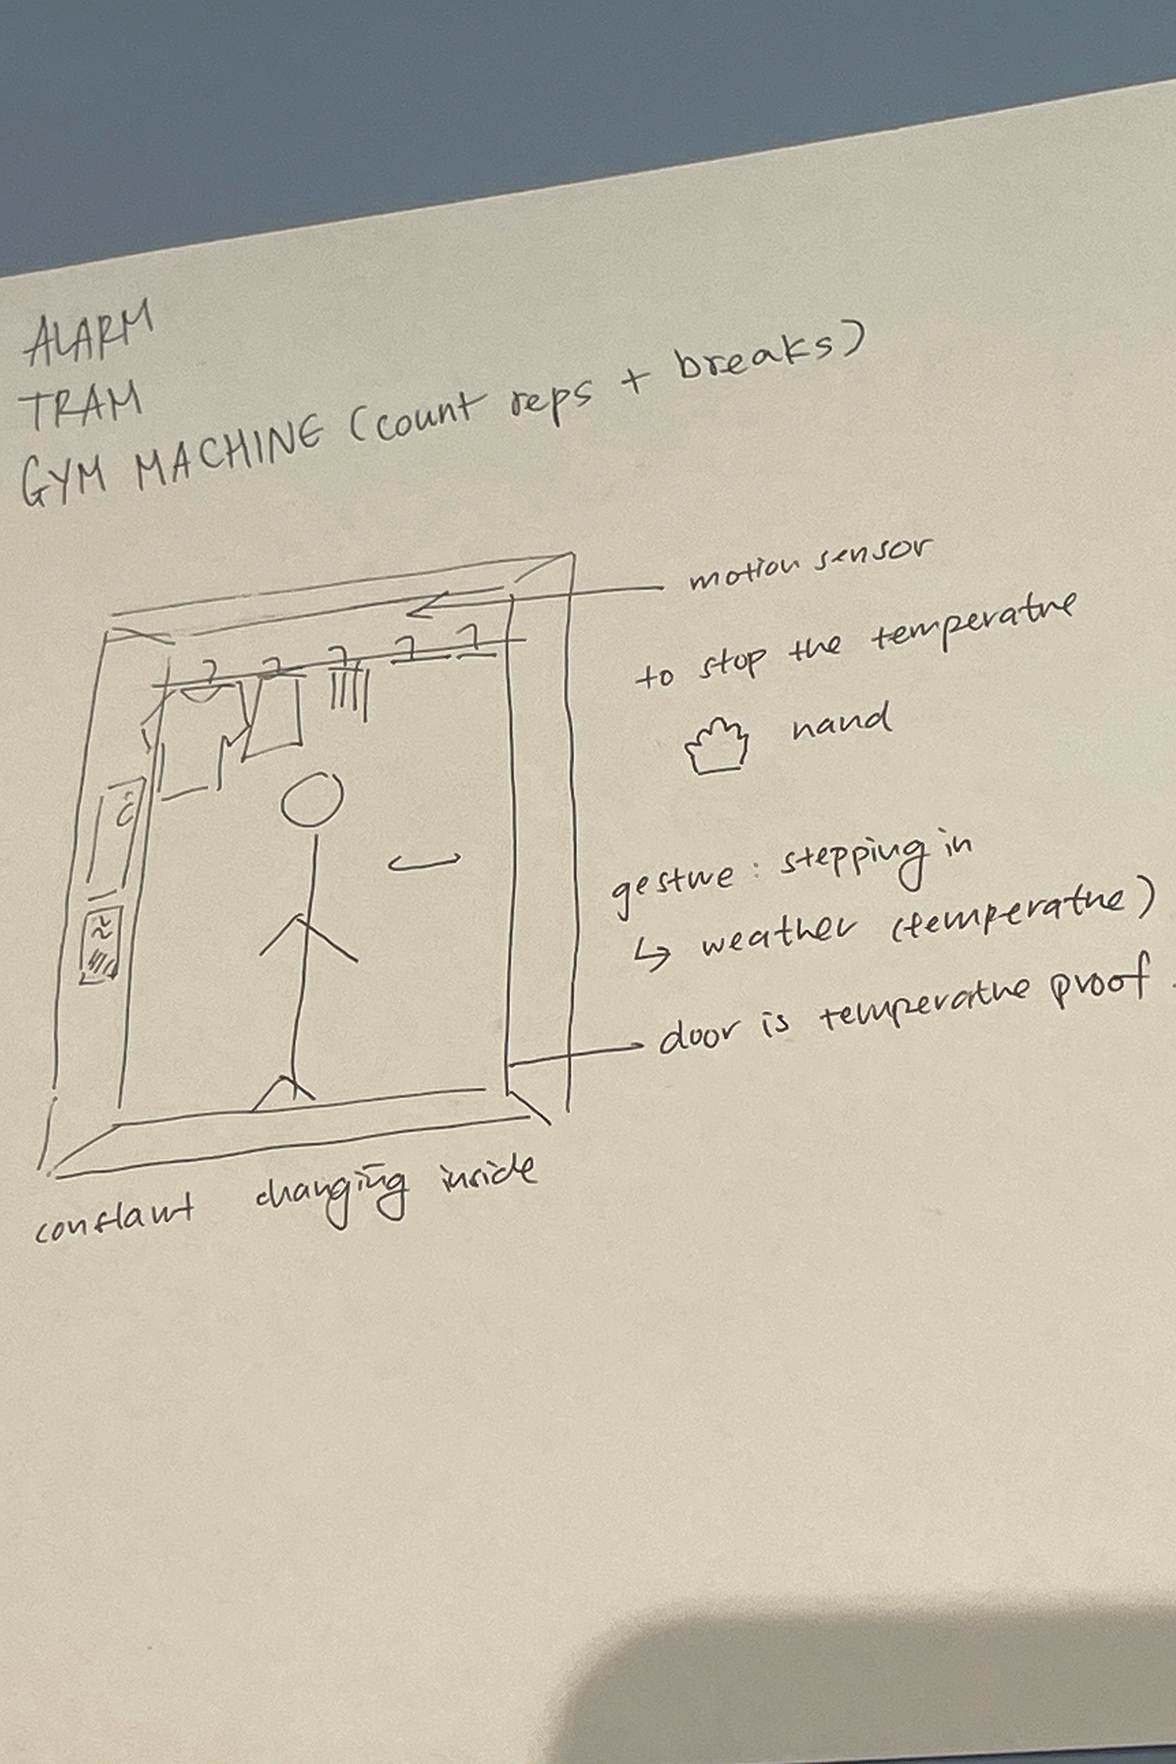 ALARM
TRAM
GYM MACHINE (count reps + breaks)
motion sensor
to stop the temperature
hand
°C
gesture : stepping in
↳ weather (temperature)
door is temperature proof.
constant changing inside